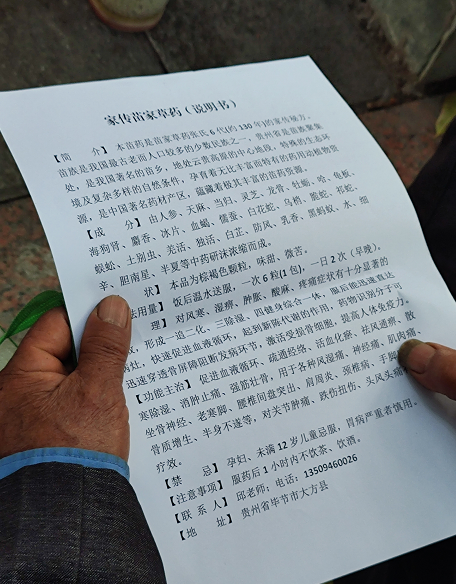 家传苗家草药（说明书）
【简　介】本苗药是苗家草药张氏6代(约130年)的家传秘方。
苗族是我国最古老而人口较多的少数民族之一，贵州省是苗族聚集
处，是我国著名的苗乡，地处云贵高原的中心地段，特殊的生态环
境及复杂多样的自然条件，孕育着无比丰富而特有的药用动植物资
源，是中国著名药材产区，蕴藏着极其丰富的苗药资源。
【成　分】由人参、天麻、当归、灵芝、龙骨、牡蛎、蛤、龟板、
海狗肾、麝香、冰片、血竭、儒蚕、白花蛇、乌梢、脆蛇、苏蛇、
蜈蚣、土别虫、羌活、独活、白芷、防风、乳香、黑蚂蚁、水、细
辛、胆南星、半夏等中药研沫浓缩而成。
状】本品为棕褐色颗粒，味甜、微苦。
法用量】饭后温水送服，一次6粒(1包)，一日2次（早晚）。
理】对风寒、湿痹、肿胀、酸麻、疼痛症状有十分显著的
效，形成一追二化、三除湿、四健身综合一体，服后能迅速直达
病灶，快速促进血液循环，起到新陈代谢的作用，药物识别分子可
迅速穿透骨屏障阻断发病环节，激活受损骨细胞，提高人体免疫力。
【功能主治】促进血液循环、疏通经络、活血化瘀、祛风通痹、散
寒除湿、消肿止痛，强筋壮骨，用于各种风湿痛，神经痛，肌肉痛，
坐骨神经、老寒脚、腰椎间盘突出、肩周炎、颈椎病、手脚
骨质增生、半身不遂等，对关节肿痛、跌伤扭伤、头风头痛
疗效。
【禁　忌】孕妇、未满12岁儿童忌服，胃病严重者慎用。
【注意事项】服药后1小时内不饮茶、饮酒。
【联 系 人】邱老师；电话：13509460026
【地　址】贵州省毕节市大方县